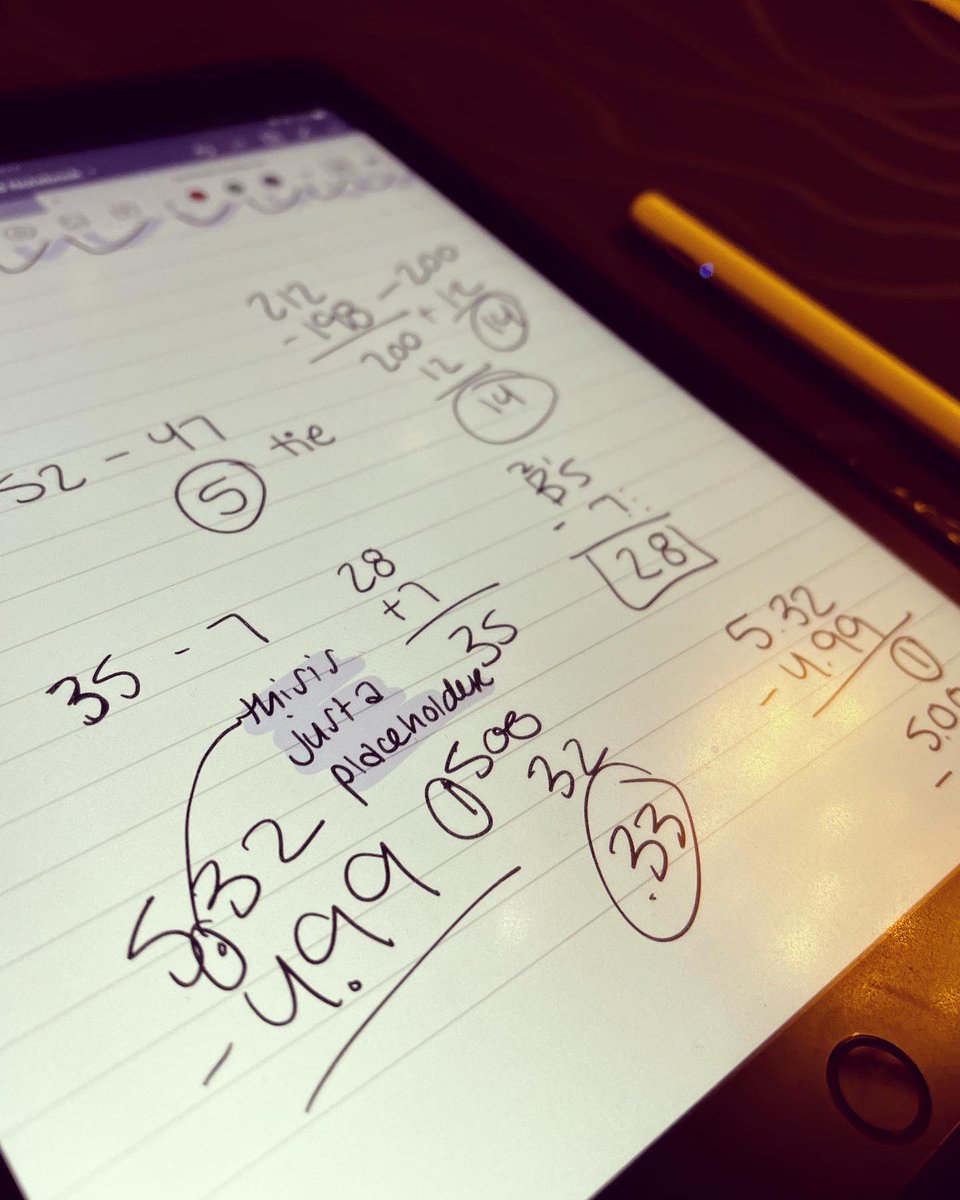 212 - 200
- 198 + 12
200 14
12
14
52 - 47
5 tie
35
- 7
28
35 - 7
28
+7
35
this is
just a
placeholder
5.32
- 4.99
1
5.00
-
5.32
- 4.99
1 500
32
.33